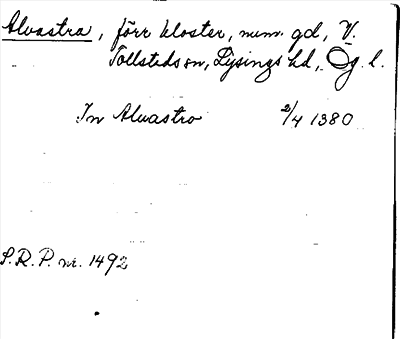 Alvastra, förr kloster, num. gd, V.
Tollstads sn, Lysings hd, Ög. l.
In Alvastro 2/4 1380
S.R.P. nr. 1492